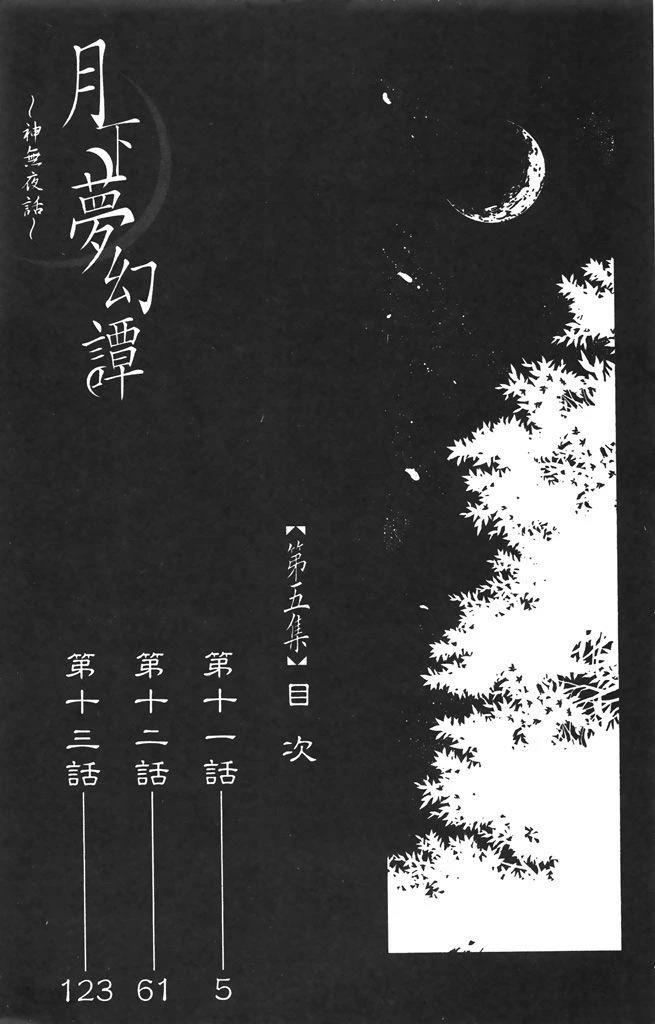 月下夢幻譚
～神無夜話～
【第五集】目次
第十一話 5
第十二話 61
第十三話 123